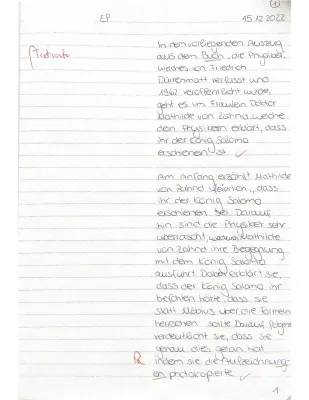 1
EP 15.12.2022
In dem vorliegenden Auszug
aus dem Buch „die Physiker",
welches von Friedrich
Dürrenmatt verfasst und
1962 veröffentlicht wurde,
geht es um Fräulein Doktor
Mathilde von Zahnd, welche
den Physikern erklärt, dass
ihr der König Salomo
erschienen ist.
Am Anfang erzählt Mathilde
von Zahnd dass
ihr der König Salomo
erschienen sei. Darauf
hin sind die Physiker sehr
überrascht, Mathilde
von Zahnd ihre Begegnung
mit dem König Salomo
ausführt. Dabei erklärt sie,
dass der König Salomo ihr
befohlen hätte, dass sie
statt Möbius über die Formeln
herrschen solle. Darauf folgend
verdeutlicht sie, dass sie
genau dies getan hat
indem sie die Aufzeichnung-
en photocopierte.
R
1